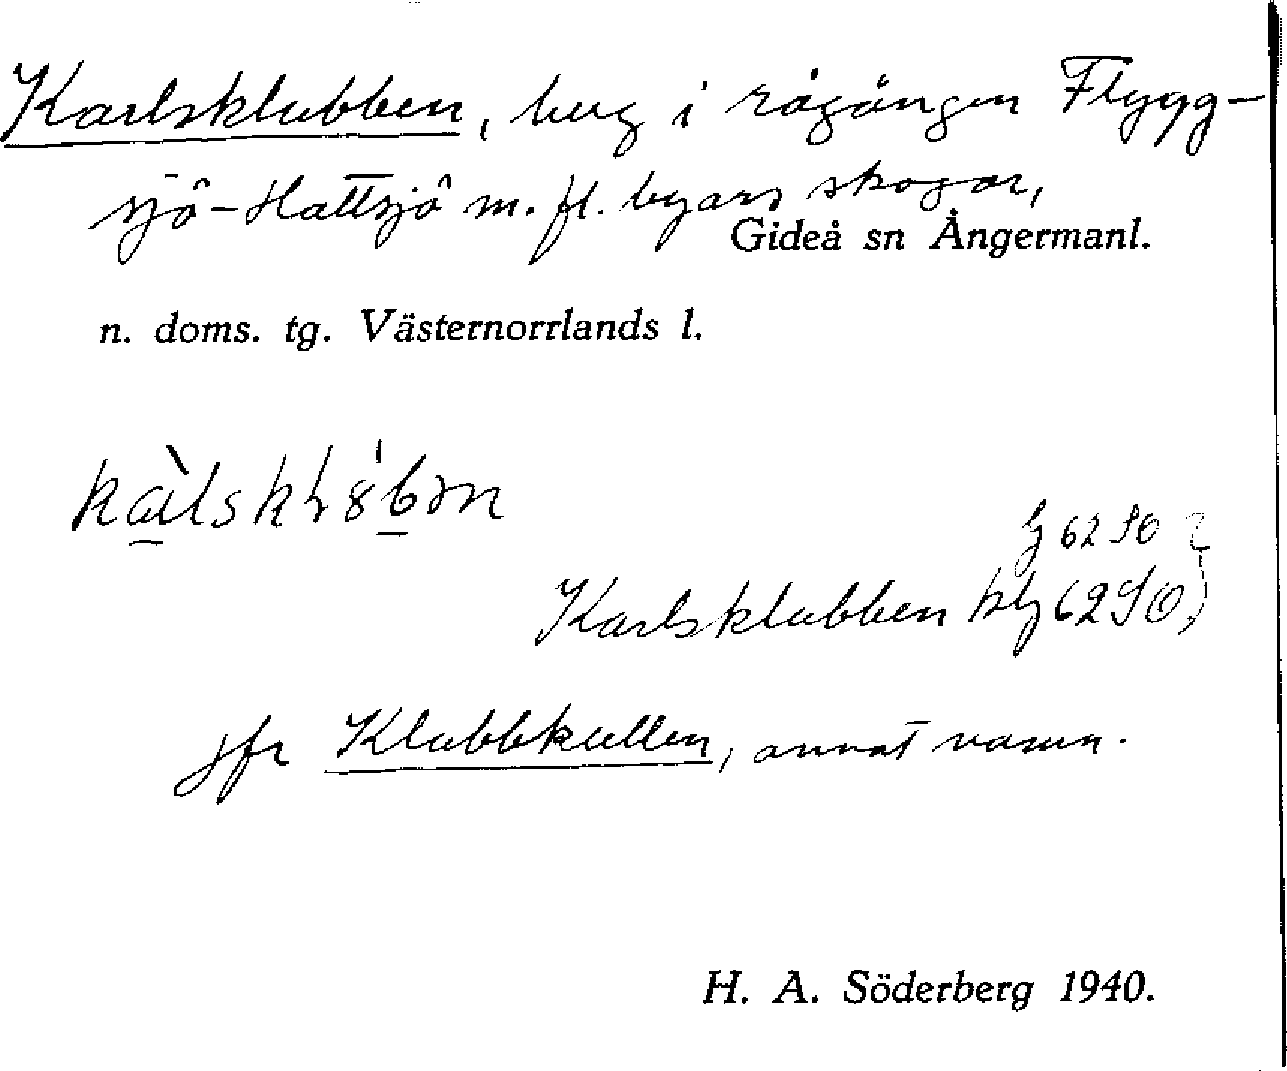 Karlsklubben, berg i rågången Flygg-
sjö-Hattsjö m. fl. byars skogar,
Gideå sn Ångermanl.
n. doms. tg. Västernorrlands l.
Karlsklubben
jfr Klubbkullen, annat namn.
H. A. Söderberg 1940.